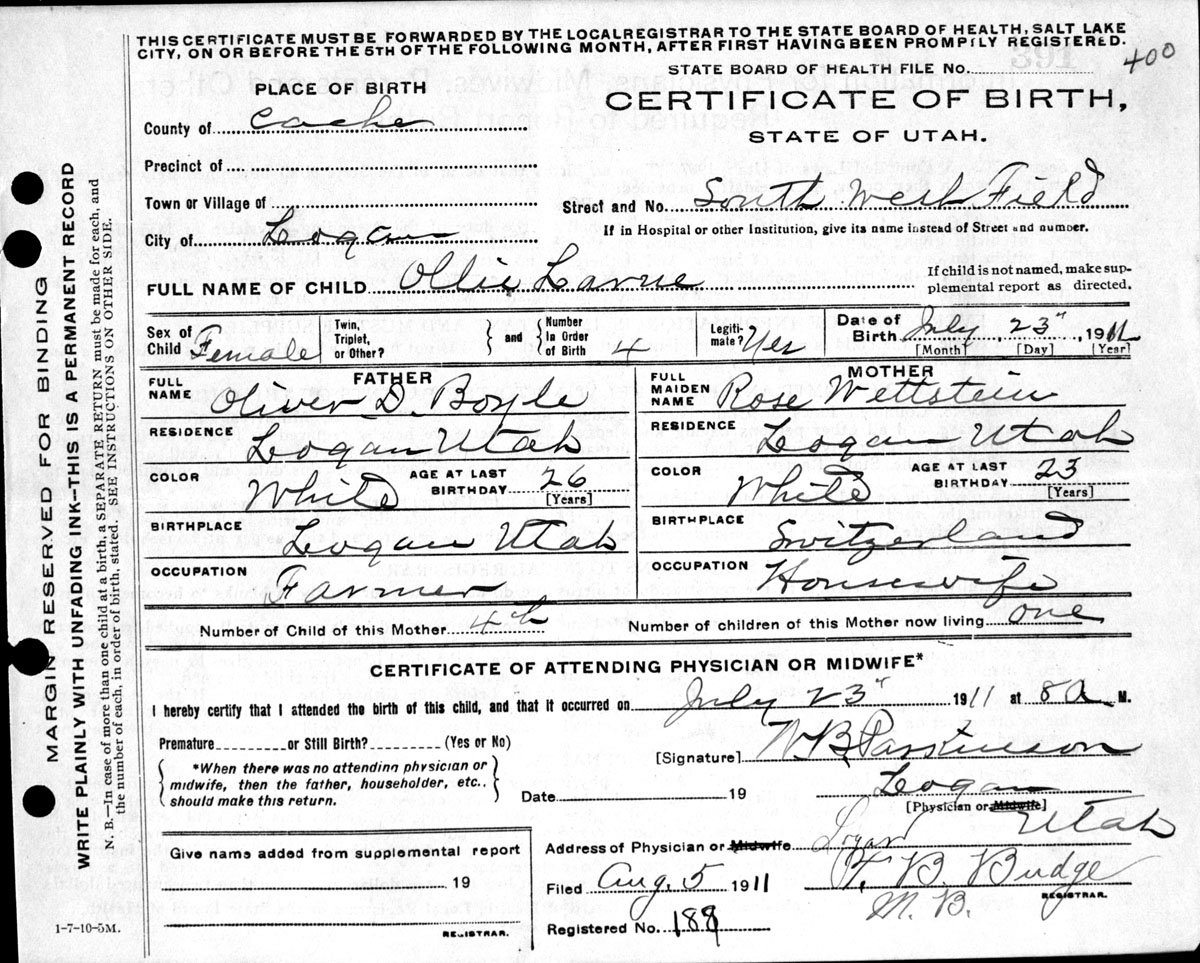 THIS CERTIFICATE MUST BE FORWARDED BY THE LOCALREGISTRAR TO THE STATE BOARD OF HEALTH, SALT LAKE
CITY, ON OR BEFORE THE 5TH OF THE FOLLOWING MONTH, AFTER FIRST HAVING BEEN PROMPTLY REGISTERED.
STATE BOARD OF HEALTH FILE No. 400
PLACE OF BIRTH
CERTIFICATE OF BIRTH,
STATE OF UTAH.
County of Cache
Precinct of
Town or Village of
Street and No. South West Field
City of Logan
If in Hospital or other Institution, give its name instead of Street and number.
FULL NAME OF CHILD Ollie Larue
If child is not named, make sup-
plemental report as directed.
Sex of Child Female
Twin, Triplet, or Other?
and
Number In Order of Birth 4
Legiti- mate? Yes
Date of Birth July 23", 1911
[Month] [Day] [Year]
FATHER
FULL NAME Oliver D. Boyle
RESIDENCE Logan Utah
COLOR White
AGE AT LAST BIRTHDAY 26 [Years]
BIRTHPLACE Logan Utah
OCCUPATION Farmer
MOTHER
FULL MAIDEN NAME Rose Wettstein
RESIDENCE Logan Utah
COLOR White
AGE AT LAST BIRTHDAY 23 [Years]
BIRTHPLACE Switzerland
OCCUPATION Housewife
Number of Child of this Mother 4th
Number of children of this Mother now living one
CERTIFICATE OF ATTENDING PHYSICIAN OR MIDWIFE*
I hereby certify that I attended the birth of this child, and that it occurred on July 23" 1911 at 8 a M.
Premature or Still Birth? (Yes or No)
*When there was no attending physician or
midwife, then the father, householder, etc.,
should make this return.
[Signature] W B Parkinson
Logan
Date 19
[Physician or Midwife]
Utah
Give name added from supplemental report
19
REGISTRAR.
Address of Physician or Midwife Logan
Filed Aug. 5 1911
B Budge
M. B.
REGISTRAR.
Registered No. 188
1-7-10-5M.
MARGIN RESERVED FOR BINDING
WRITE PLAINLY WITH UNFADING INK—THIS IS A PERMANENT RECORD
N. B.—In case of more than one child at a birth, a SEPARATE RETURN must be made for each, and
the number of each, in order of birth, stated. SEE INSTRUCTIONS ON OTHER SIDE.